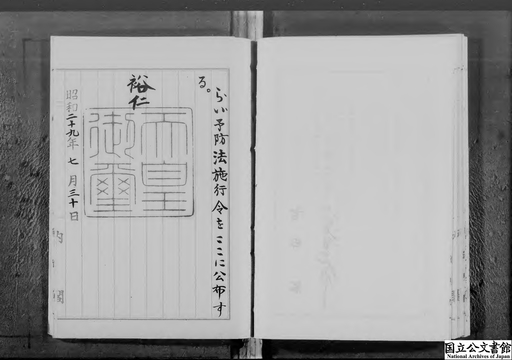 らい予防法施行令をここに公布す
る。
裕仁
天皇御璽
昭和二十九年七月三十日
内閣
国立公文書館
National Archives of Japan